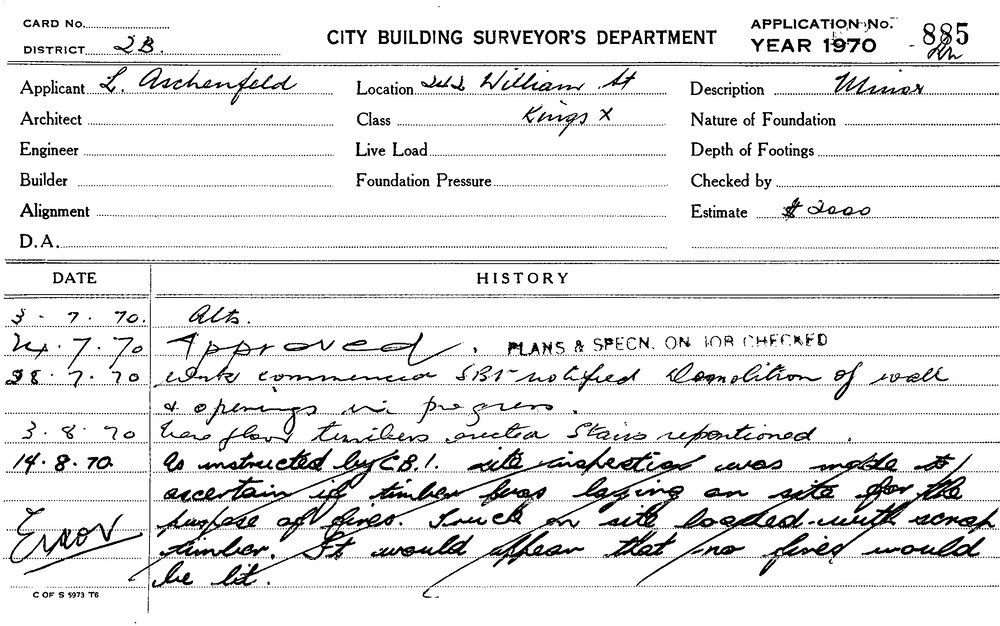 CARD No.
DISTRICT 2B.
CITY BUILDING SURVEYOR'S DEPARTMENT
APPLICATION No. 885
YEAR 1970
Applicant L. Aschenfeld
Location 242 William St
Description Minor
Architect
Class Kings X
Nature of Foundation
Engineer
Live Load
Depth of Footings
Builder
Foundation Pressure
Checked by
Alignment
Estimate $2000
D.A.
DATE HISTORY
3 . 7 . 70. Alts.
24 . 7 . 70 Approved . PLANS & SPECN. ON JOB CHECKED
28 . 7 . 70 Work commenced notified Demolition of wall
& openings in progress .
3 . 8 . 70 New floor timbers erected Stairs repositioned .
14 . 8 . 70. As instructed by C.B.I. site inspection was made to
ascertain if timber was laying on site for the
purpose of fires. Truck on site loaded with scrap
Error
timber. It would appear that no fires would
be lit.
C OF S 5973 T6